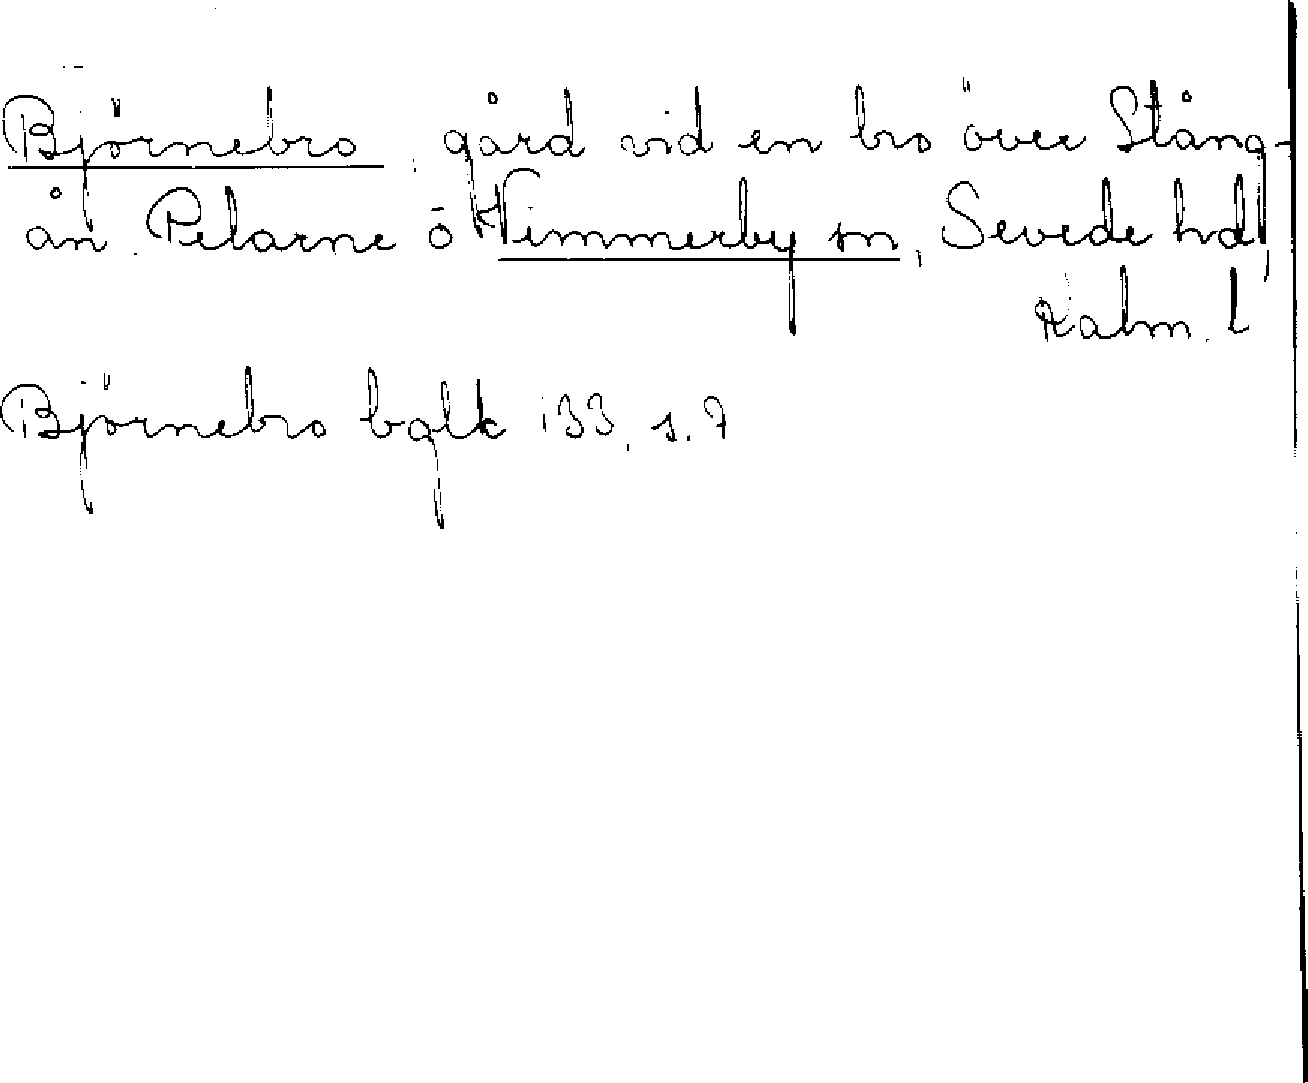 Björnebro, gård vid en bro över Stång-
ån. Pelarne o Vimmerby sn, Sevede hd,
Kalm. l
Björnebro bqlk 133, s. 7